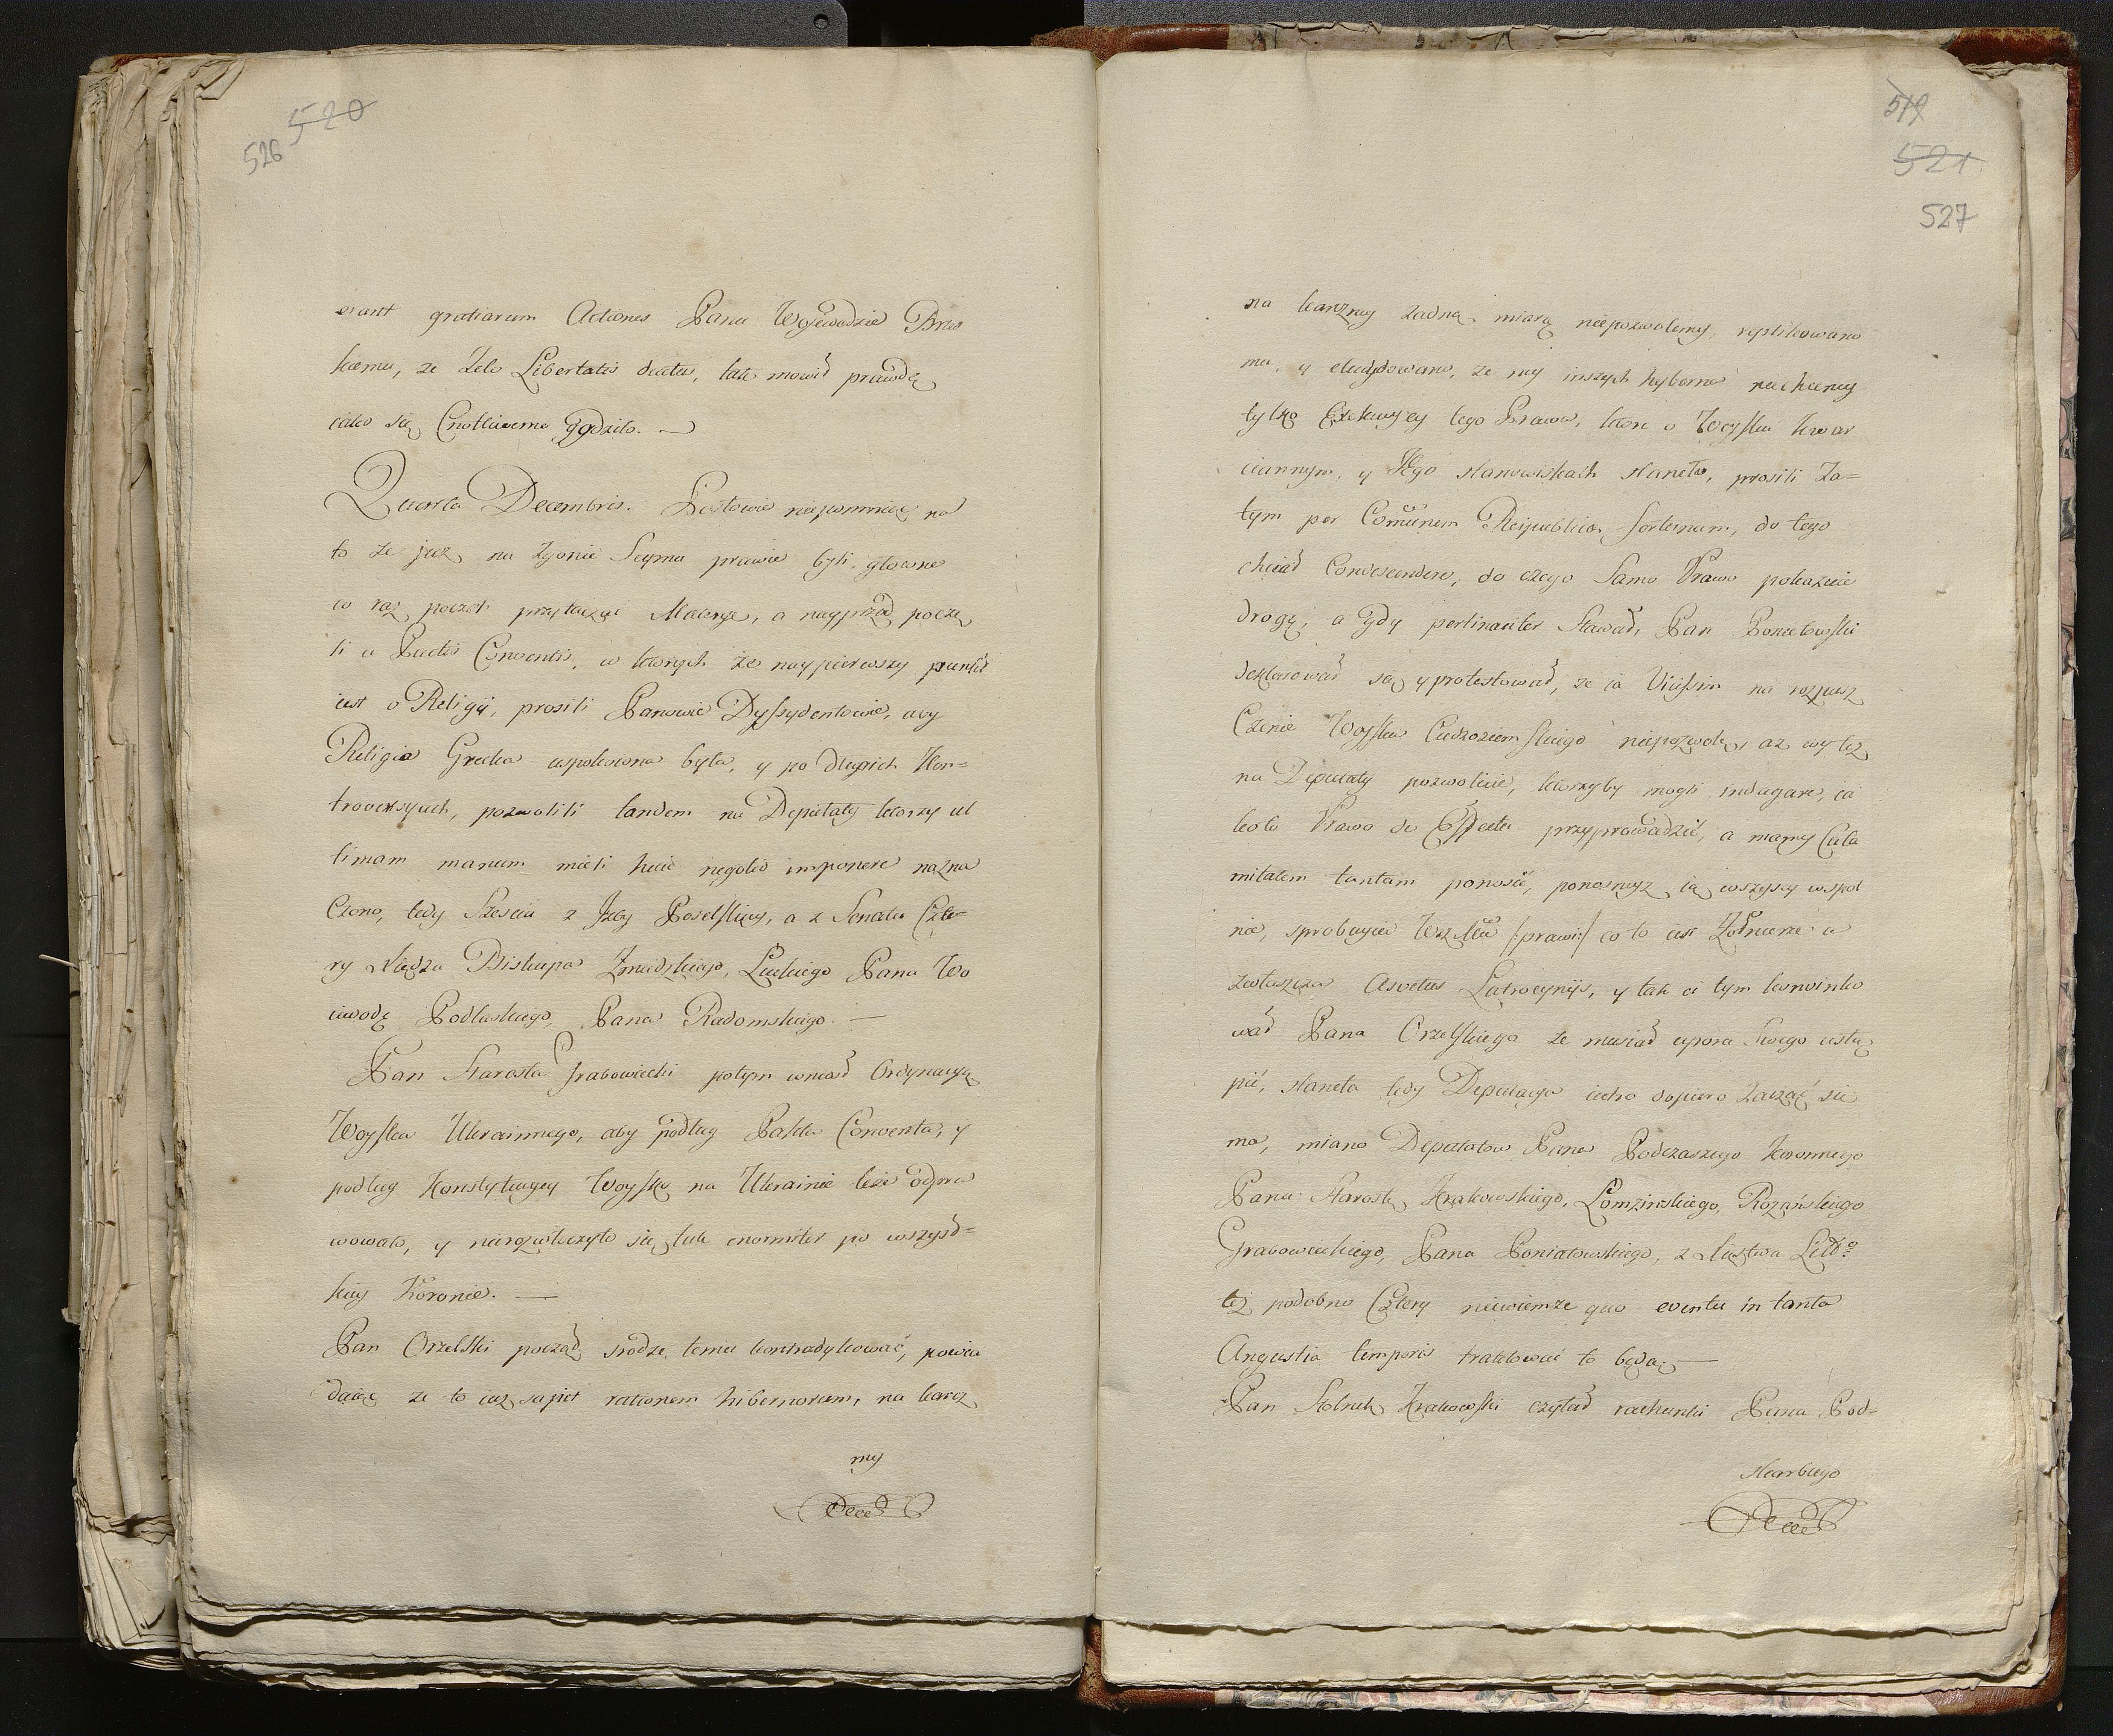 520
526
erant gratiarum Actiones Panu Woiewodzie Brzes
kiemu, ze Zelo Libertatis ductus, tak mowił prawdę
iako się Cnotliwemu godziło. —
Quarta Decembris. Posłowie niepomniąc na
to ze juz na zgonie Seymu prawie byli. głowne
co raz poczęli przytaczać Materye, a nayprzod poczę
li o Pactis Conventis, w ktorych ze naypierwszy punkt
iest o Religii, prosili Panowie Dyssydentowie, aby
Religia Grecka uspokoiona była, y po długich Kon=
trowersyach, pozwolili tandem na Deputaty ktorzy ul
timam manum mieli huic negotio imponere nazna
czono, tedy Szesciu z Izby Poselskiey, a z Senatu Czte=
ry Xiędza Biskupa Zmudzkiego, Łuckiego Pana Wo
iewodę Podlaskiego, Pana Radomskiego. —
Pan Starosta Grabowiecki potym wniosł Ordynacyą
Woyska Ukrainnego, aby podług Pakta Conventa, y
podług Konstytucyey Woysko na Ukrainie leze odpra
wowało, y nierozwłoczyło się tak enormiter po wszyst=
kiey Koronie. —
Pan Orzelski począł srodze temu kontradykować, powia
daiąc ze to iuz sapiet rationem hibernorum, na karcz
my
519
521
527
na karczmy zadną miarą niepozwolemy, replikowano
mu, y eludydowano, ze my inszych hyberne niechcemy
tylko Exekucyey tego Prawa, ktore o Woysku kwar
ciannym, y Jego stanowiskach stanęło, prosili Za=
tym per Comunem Reipublicæ fortunam, do tego
chciał Condescendere, do czego Samo Prawo pokazuie
drogę, a gdy pertinaciter Stawał, Pan Poniatowski
deklarował się y protestował, ze ia Vicissim na rozpusz
Czenie Woyska Cudzoziemskiego niepozwolę, az wy tez
na Deputaty pozwolicie, ktorzyby mogli indagare, ia
koto Prawo do Effectu przyprowadzić, a mamy Cala
mitatem tantam ponosić, ponosmysz ią wszyscy wspol
nie, sprobuycie WszMć /:prawi:/ co to iest Zołnierz a
zwłaszcza Asvetus Latrocyniis, y tak ci tym konwinko
wał Pana Orzelskiego ze musiał uporu Swego ustą
pić, stanęła tedy Deputacya iutro dopiero Zacząć się
ma, miano Deputatow Pana Podczaszego Koronnego
Pana Starostę Krakowskiego, Łomzinskiego, Rozańskiego
Grabowieckiego, Pana Poniatowskiego, z Xięstwa Litto
tez podobno Cztery niewiemze quo eventu in tanta
Angustia temporis traktować to będą. —
Pan Stolnik Krakowski czytał rachunki Pana Pod=
skarbiego